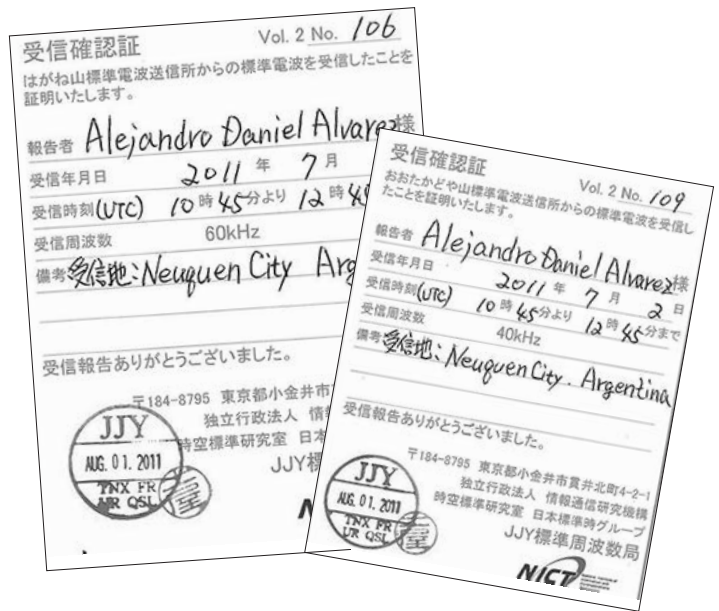 受信確認証
Vol. 2 No. 106
はがね山標準電波送信所からの標準電波を受信したことを
証明いたします。
報告者 Alejandro Daniel Alvarez様
受信年月日 2011 年 7 月
受信時刻(UTC) 10 時 45 分より 12 時
受信周波数 60kHz
備考 受信地:Neuquen City Arg
受信報告ありがとうございました。
〒184-8795 東京都小金井市
独立行政法人 情
時空標準研究室 日本
JJY標
JJY
AUG. 01. 2011
TNX FR
UR QSL
受信確認証
Vol. 2 No. 109
おおたかどや山標準電波送信所からの標準電波を受信し
たことを証明いたします。
報告者 Alejandro Daniel Alvarez様
受信年月日 2011 年 7 月 2 日
受信時刻(UTC) 10 時 45 分より 12 時 45 分まで
受信周波数 40kHz
備考 受信地:Neuquen City. Argentina
受信報告ありがとうございました。
〒184-8795 東京都小金井市貫井北町4-2-1
独立行政法人 情報通信研究機構
時空標準研究室 日本標準時グループ
JJY標準周波数局
JJY
AUG. 01. 2011
TNX FR
UR QSL
NICT